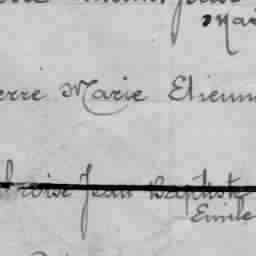 Mar
erre Marie Etienn
broise Jean Baptiste
Emile